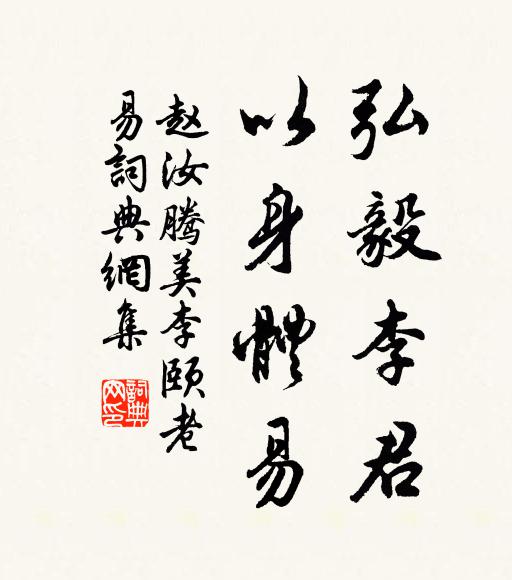 弘毅李君
以身體易
赵汝腾美李颐老
易詞典網集
詞典网印